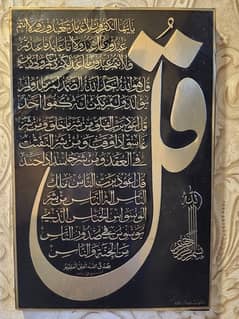 قل
بسم الله الرحمن الرحيم
يا أيها الكافرون لا أعبد ما تعبدون ولا أنتم
عابدون ما أعبد ولا أنا عابد ما عبدتم
ولا أنتم عابدون ما أعبد لكم دينكم ولي دين
قل هو الله أحد الله الصمد لم يلد ولم
يولد ولم يكن له كفوا أحد
قل أعوذ برب الفلق من شر ما خلق ومن شر
غاسق إذا وقب ومن شر النفاثات
في العقد ومن شر حاسد إذا حسد
قل أعوذ برب الناس ملك
الناس إله الناس من شر
الوسواس الخناس الذي
يوسوس في صدور الناس
من الجنة والناس
صدق الله العلي العظيم